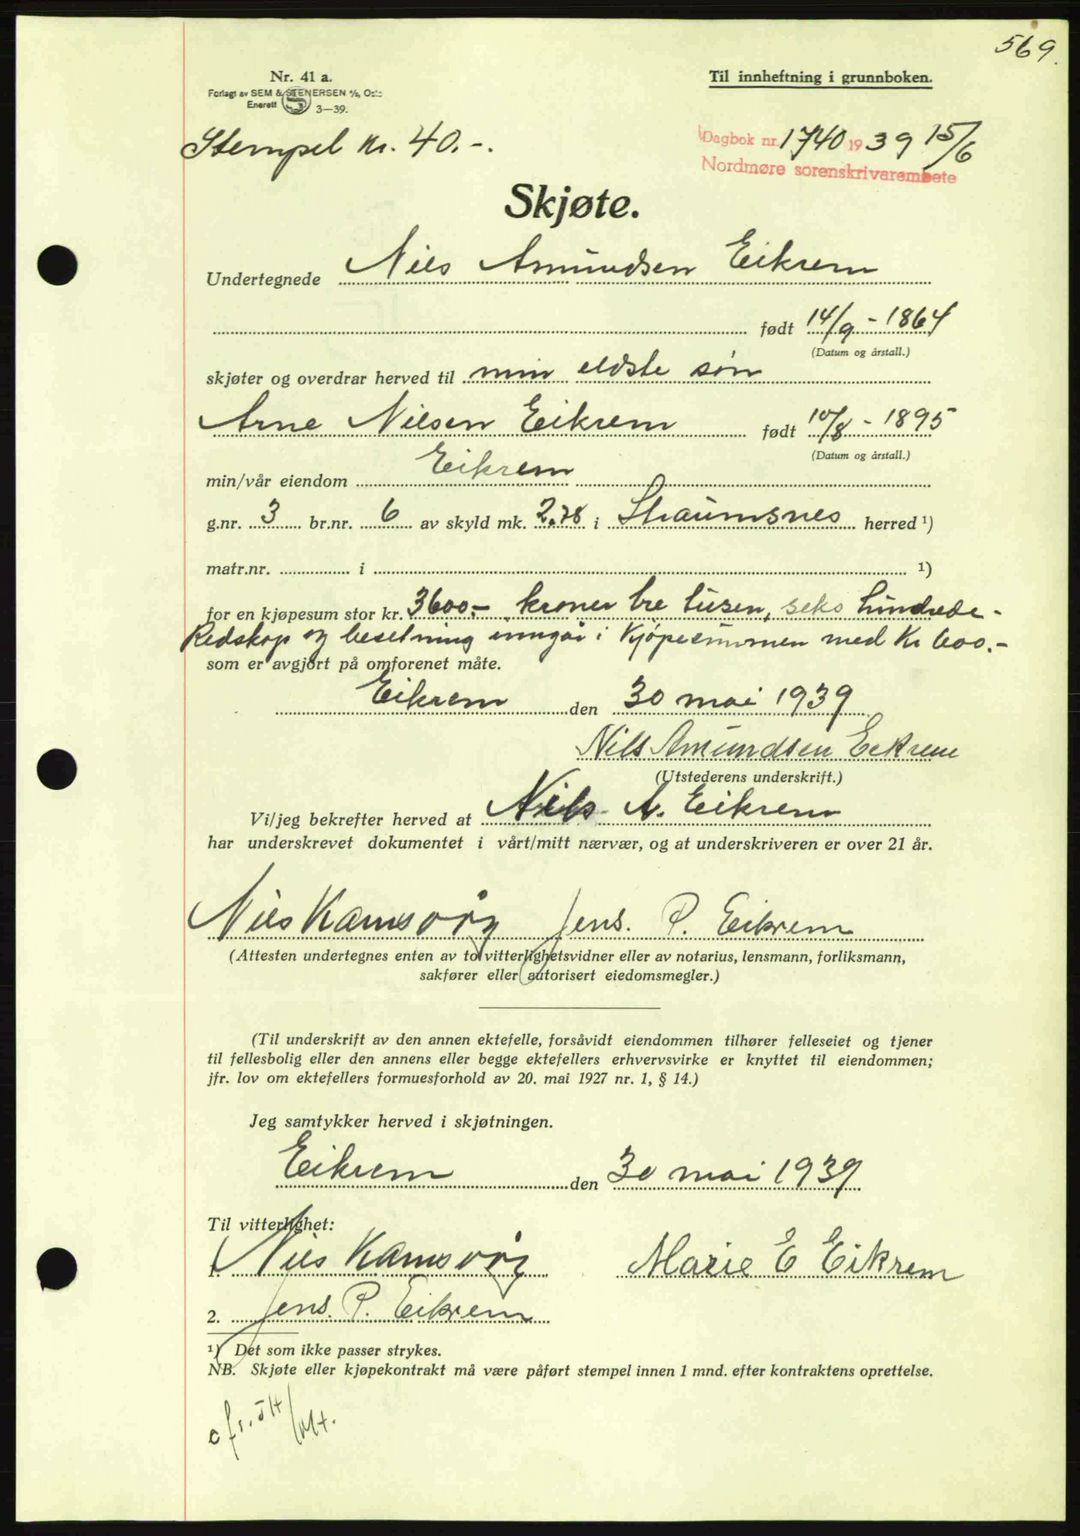 569.
Nr. 41 a.
Forlagt av SEM & STENERSEN A/S, Oslo
Enerett S 3—39.
Til innheftning i grunnboken.
Stempel kr. 40.-.
Dagbok nr. 1740 1939 15/6
Nordmøre sorenskrivarembete
Skjøte.
Undertegnede Nils Amundsen Eikrem
født 14/9 - 1864
(Datum og årstall.)
skjøter og overdrar herved til min eldste søn
Arne Nilsen Eikrem født 10/8 - 1895
(Datum og årstall.)
min/vår eiendom Eikrem
g.nr. 3 br.nr. 6 av skyld mk. 2.78 i Straumsnes herred ¹)
matr.nr. i ¹)
for en kjøpesum stor kr. 3600,- kroner tre tusen, seks hundrede -
Redskap og besetning inngår i kjøpesummen med Kr 600.-
som er avgjort på omforenet måte.
Eikrem den 30 mai 1939
Nils Amundsen Eikrem
(Utstederens underskrift.)
Vi/jeg bekrefter herved at Nils A. Eikrem
har underskrevet dokumentet i vårt/mitt nærvær, og at underskriveren er over 21 år.
Nils Kamsvåg Jens. P. Eikrem
(Attesten undertegnes enten av to vitterlighetsvidner eller av notarius, lensmann, forliksmann,
sakfører eller autorisert eiedomsmegler.)
(Til underskrift av den annen ektefelle, forsåvidt eiendommen tilhører felleseiet og tjener
til fellesbolig eller den annens eller begge ektefellers erhvervsvirke er knyttet til eiendommen;
jfr. lov om ektefellers formuesforhold av 20. mai 1927 nr. 1, § 14.)
Jeg samtykker herved i skjøtningen.
Eikrem den 30 mai 1939
Til vitterlighet:
1. Nils Kamsvåg Marie E Eikrem
2. Jens. P. Eikrem
¹) Det som ikke passer strykes.
NB. Skjøte eller kjøpekontrakt må være påført stempel innen 1 mnd. efter kontraktens oprettelse.